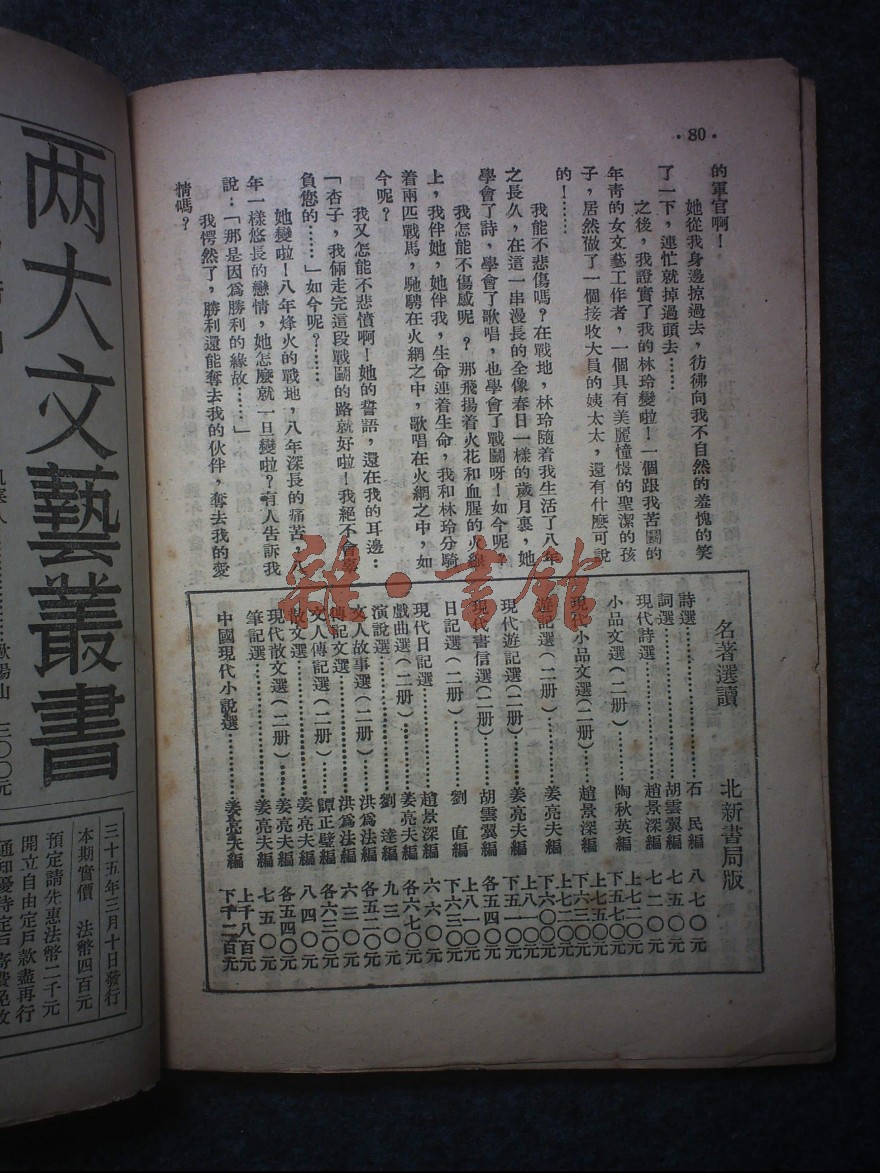 ·80·
的軍官啊！
她從我身邊掠過去，彷彿向我不自然的羞愧的笑
了一下，連忙就掉過頭去……
之後，我證實了我的林玲變啦！一個跟我苦鬪的
年靑的女文藝工作者，一個具有美麗憧憬的聖潔的孩
子，居然做了一個接收大員的姨太太，還有什麼可說
的！……
我能不悲傷嗎？在戰地，林玲隨着我生活了八年
之長久，在這一串漫長的全像春日一樣的歲月裏，她
學會了詩，學會了歌唱，也學會了戰鬪呀！如今呢？
我怎能不傷感呢？那飛揚着火花和血腥的火線
上，我伴她，她伴我，生命連着生命，我和林玲分騎
着兩匹戰馬，馳騁在火網之中，歌唱在火網之中，如
今呢？
我又怎能不悲憤啊！她的誓語，還在我的耳邊：
「杏子，我倆走完這段戰鬪的路就好啦！我絕不會辜
負您的……」如今呢？……
她變啦！八年烽火的戰地，八年深長的痛苦，八
年一樣悠長的戀情，她怎麼就一旦變啦？有人告訴我
說：「那是因爲勝利的緣故……」
我愕然了，勝利還能奪去我的伙伴，奪去我的愛
情嗎？
名著選讀 北新書局版
詩選……石民編 八七〇元
詞選……胡雲翼編 七五〇元
現代詩選……趙景深編 七二〇元
小品文選（二册）……陶秋英編 上七二〇元 下五七〇元
現代小品文選（二册）……趙景深編 上七五〇元 下六三〇元
遊記選（二册）……姜亮夫編 上七二〇元 下六〇〇元
現代遊記選（二册）……姜亮夫編 上八一〇元 下五一〇元
現代書信選（二册）……胡雲翼編 各五四〇元
日記選（二册）……劉直編 上八一〇元 下六三〇元
現代日記選……趙景深編 六六〇元
戲曲選（二册）……姜亮夫編 各六七〇元
演說選……劉達編 九三〇元
文人故事選（二册）……洪爲法編 各五二〇元
傳記文選……洪爲法編 六三〇元
文人傳記選（二册）……譚正璧編 各六三〇元
散文選……姜亮夫編 八四〇元
現代散文選（二册）……姜亮夫編 各五四〇元
筆記選……姜亮夫編 七五〇元
中國現代小說選……姜亮夫編 上千八百元 下千二百元
雜·書館
两大文藝叢書
歐陽山 三〇〇元
三十五年三月十日發行
本期實價 法幣四百元
預定請先惠法幣二千元
開立自由定戶款盡再行
通知優待定戶寄費免收